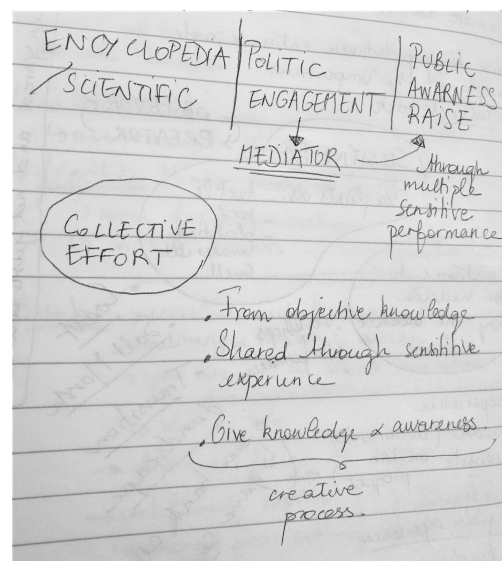 ENCYCLOPEDIA
/SCIENTIFIC
POLITIC
ENGAGEMENT
PUBLIC
AWARNESS
RAISE
MEDIATOR
through
multiple
sensitive
performance
COLLECTIVE
EFFORT
. From objective knowledge
. Shared through sensititive
experience
. Give knowledge & awareness.
creative
process.